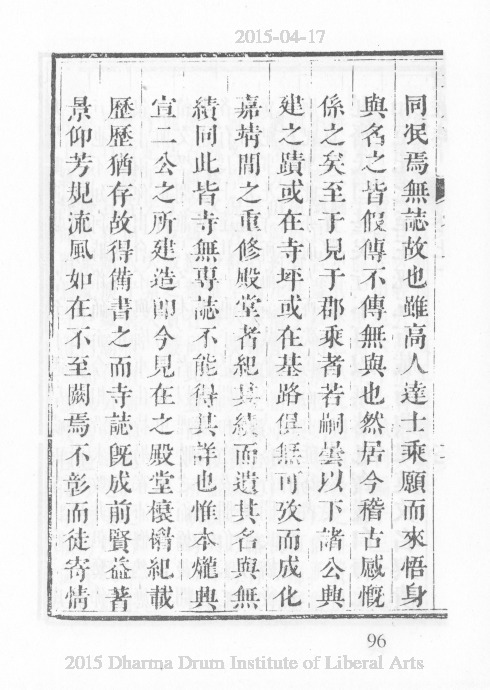 2015-04-17
同泯焉無誌故也雖高人達士乘願而來悟身
與名之皆假傳不傳無與也然居今稽古感慨
係之矣至于見于郡乘者若嗣曇以下諸公典
建之蹟或在寺坪或在基路俱無可攷而成化
嘉靖間之重修殿堂者紀其績而遺其名與無
績同此皆寺無專誌不能得其詳也惟本爖與
宣二公之所建造卽今見在之殿堂榱櫩紀載
歷歷猶存故得備書之而寺誌旣成前賢益著
景仰芳規流風如在不至闕焉不彰而徒寄情
96
2015 Dharma Drum Institute of Liberal Arts